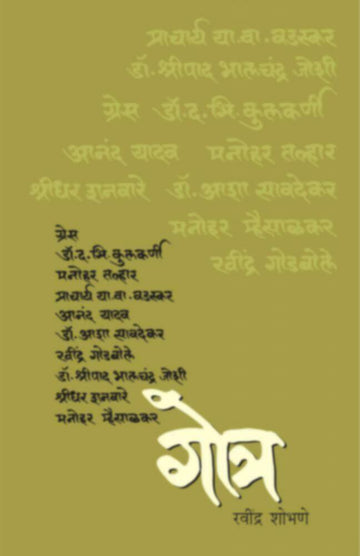 प्राचार्य या.वा.वडस्कर
डॉ.श्रीपाद भालचंद्र जोशी
ग्रेस डॉ.द.भि.कुलकर्णी
आनंद यादव मनोहर तल्हार
श्रीधर शनवारे डॉ.आशा सावदेकर
मनोहर म्हैसाळकर
रवींद्र गोडबोले
ग्रेस
डॉ.द.भि.कुलकर्णी
मनोहर तल्हार
प्राचार्य या.वा.वडस्कर
आनंद यादव
डॉ.आशा सावदेकर
रवींद्र गोडबोले
डॉ.श्रीपाद भालचंद्र जोशी
श्रीधर शनवारे
मनोहर म्हैसाळकर
गोत्र
रवींद्र शोभणे